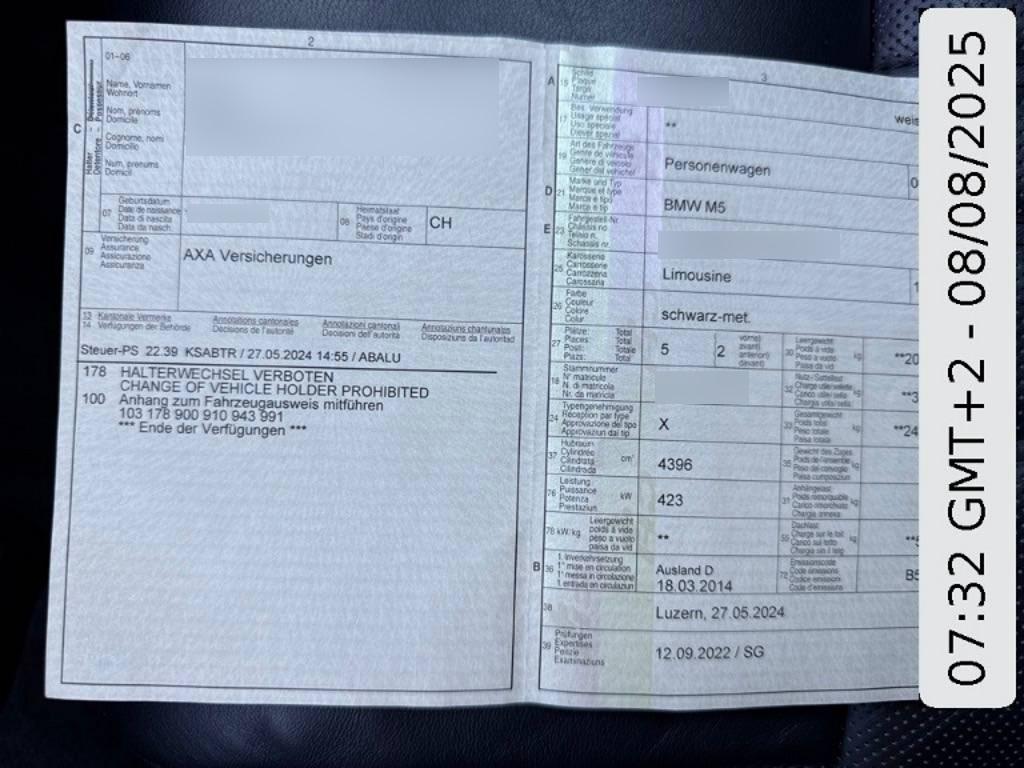 2
01-06
Halter Détenteur
Detentore Possessur
C
Name, Vornamen
Wohnort
Nom, prénoms
Domicile
Cognome, nomi
Domicilio
Num, prenums
Domicil
07
Geburtsdatum
Date de naissance
Data di nascita
Data da nasch.
08
Heimatstaat
Pays d'origine
Paese d'origine
Stadi d'origin
CH
09
Versicherung
Assurance
Assicurazione
Assicuranza
AXA Versicherungen
13 Kantonale Vermerke
14 Verfügungen der Behörde
Annotations cantonales
Décisions de l'autorité
Annotazioni cantonali
Decisioni dell'autorità
Annotaziuns chantunalas
Disposiziuns da l'autoritad
Steuer-PS 22.39 KSABTR / 27.05.2024 14:55 / ABALU
178 HALTERWECHSEL VERBOTEN
CHANGE OF VEHICLE HOLDER PROHIBITED
100 Anhang zum Fahrzeugausweis mitführen
103 178 900 910 943 991
*** Ende der Verfügungen ***
3
A 15
Schild
Plaque
Targa
Numer
weis
17
Bes. Verwendung
Usage spécial
Uso speciale
Diever spezial
**
19
Art des Fahrzeugs
Genre de véhicule
Genere di veicolo
Gener dal vehichel
Personenwagen
0
D 21
Marke und Typ
Marque et type
Marca e tipo
Marca e tip
BMW M5
E 23
Fahrgestell-Nr.
Châssis no
Telaio n.
Schassis nr.
25
Karosserie
Carrosserie
Carrozzeria
Carossaria
Limousine
1
26
Farbe
Couleur
Colore
Colur
schwarz-met.
27
Plätze: Total
Places: Total
Posti: Totale
Plazs: Total
5
2
vorne)
avant)
anteriori)
davant)
30
Leergewicht
Poids à vide
Peso a vuoto
Paisa da vid
kg
**20
18
Stammnummer
N° matricule
N. di matricola
Nr. da matricla
32
Nutz-/Sattellast
kg
**3
24
Typengenehmigung
Réception par type
Approvazione del tipo
Approvaziun dal tip
X
33
Gesamtgewicht
Poids total
Peso totale
Paisa totala
kg
**24
37
Hubraum
Cylindrée
Cilindrata
Cilindrada
cm³
4396
35
Gewicht des Zuges
Poids de l'ensemble
kg
76
Leistung
Puissance
Potenza
Prestaziun
kW
423
31
Anhängelast
Poids remorquable
kg
78 kW/kg
Leergewicht
poids à vide
peso a vuoto
paisa da vid
**
55
Dachlast
Charge sur le toit
Carico sul tetto
kg
B 36
1. Inverkehrsetzung
1re mise en circulation
1a messa in circolazione
1. entrada en circulaziun
Ausland D
18.03.2014
72
Emissionscode
Code émissions
Codice emissioni
Code d'emissiuns
B5
38
Luzern, 27.05.2024
39
Prüfungen
Expertises
Perizie
Examinaziuns
12.09.2022 / SG
07:32 GMT+2 - 08/08/2025